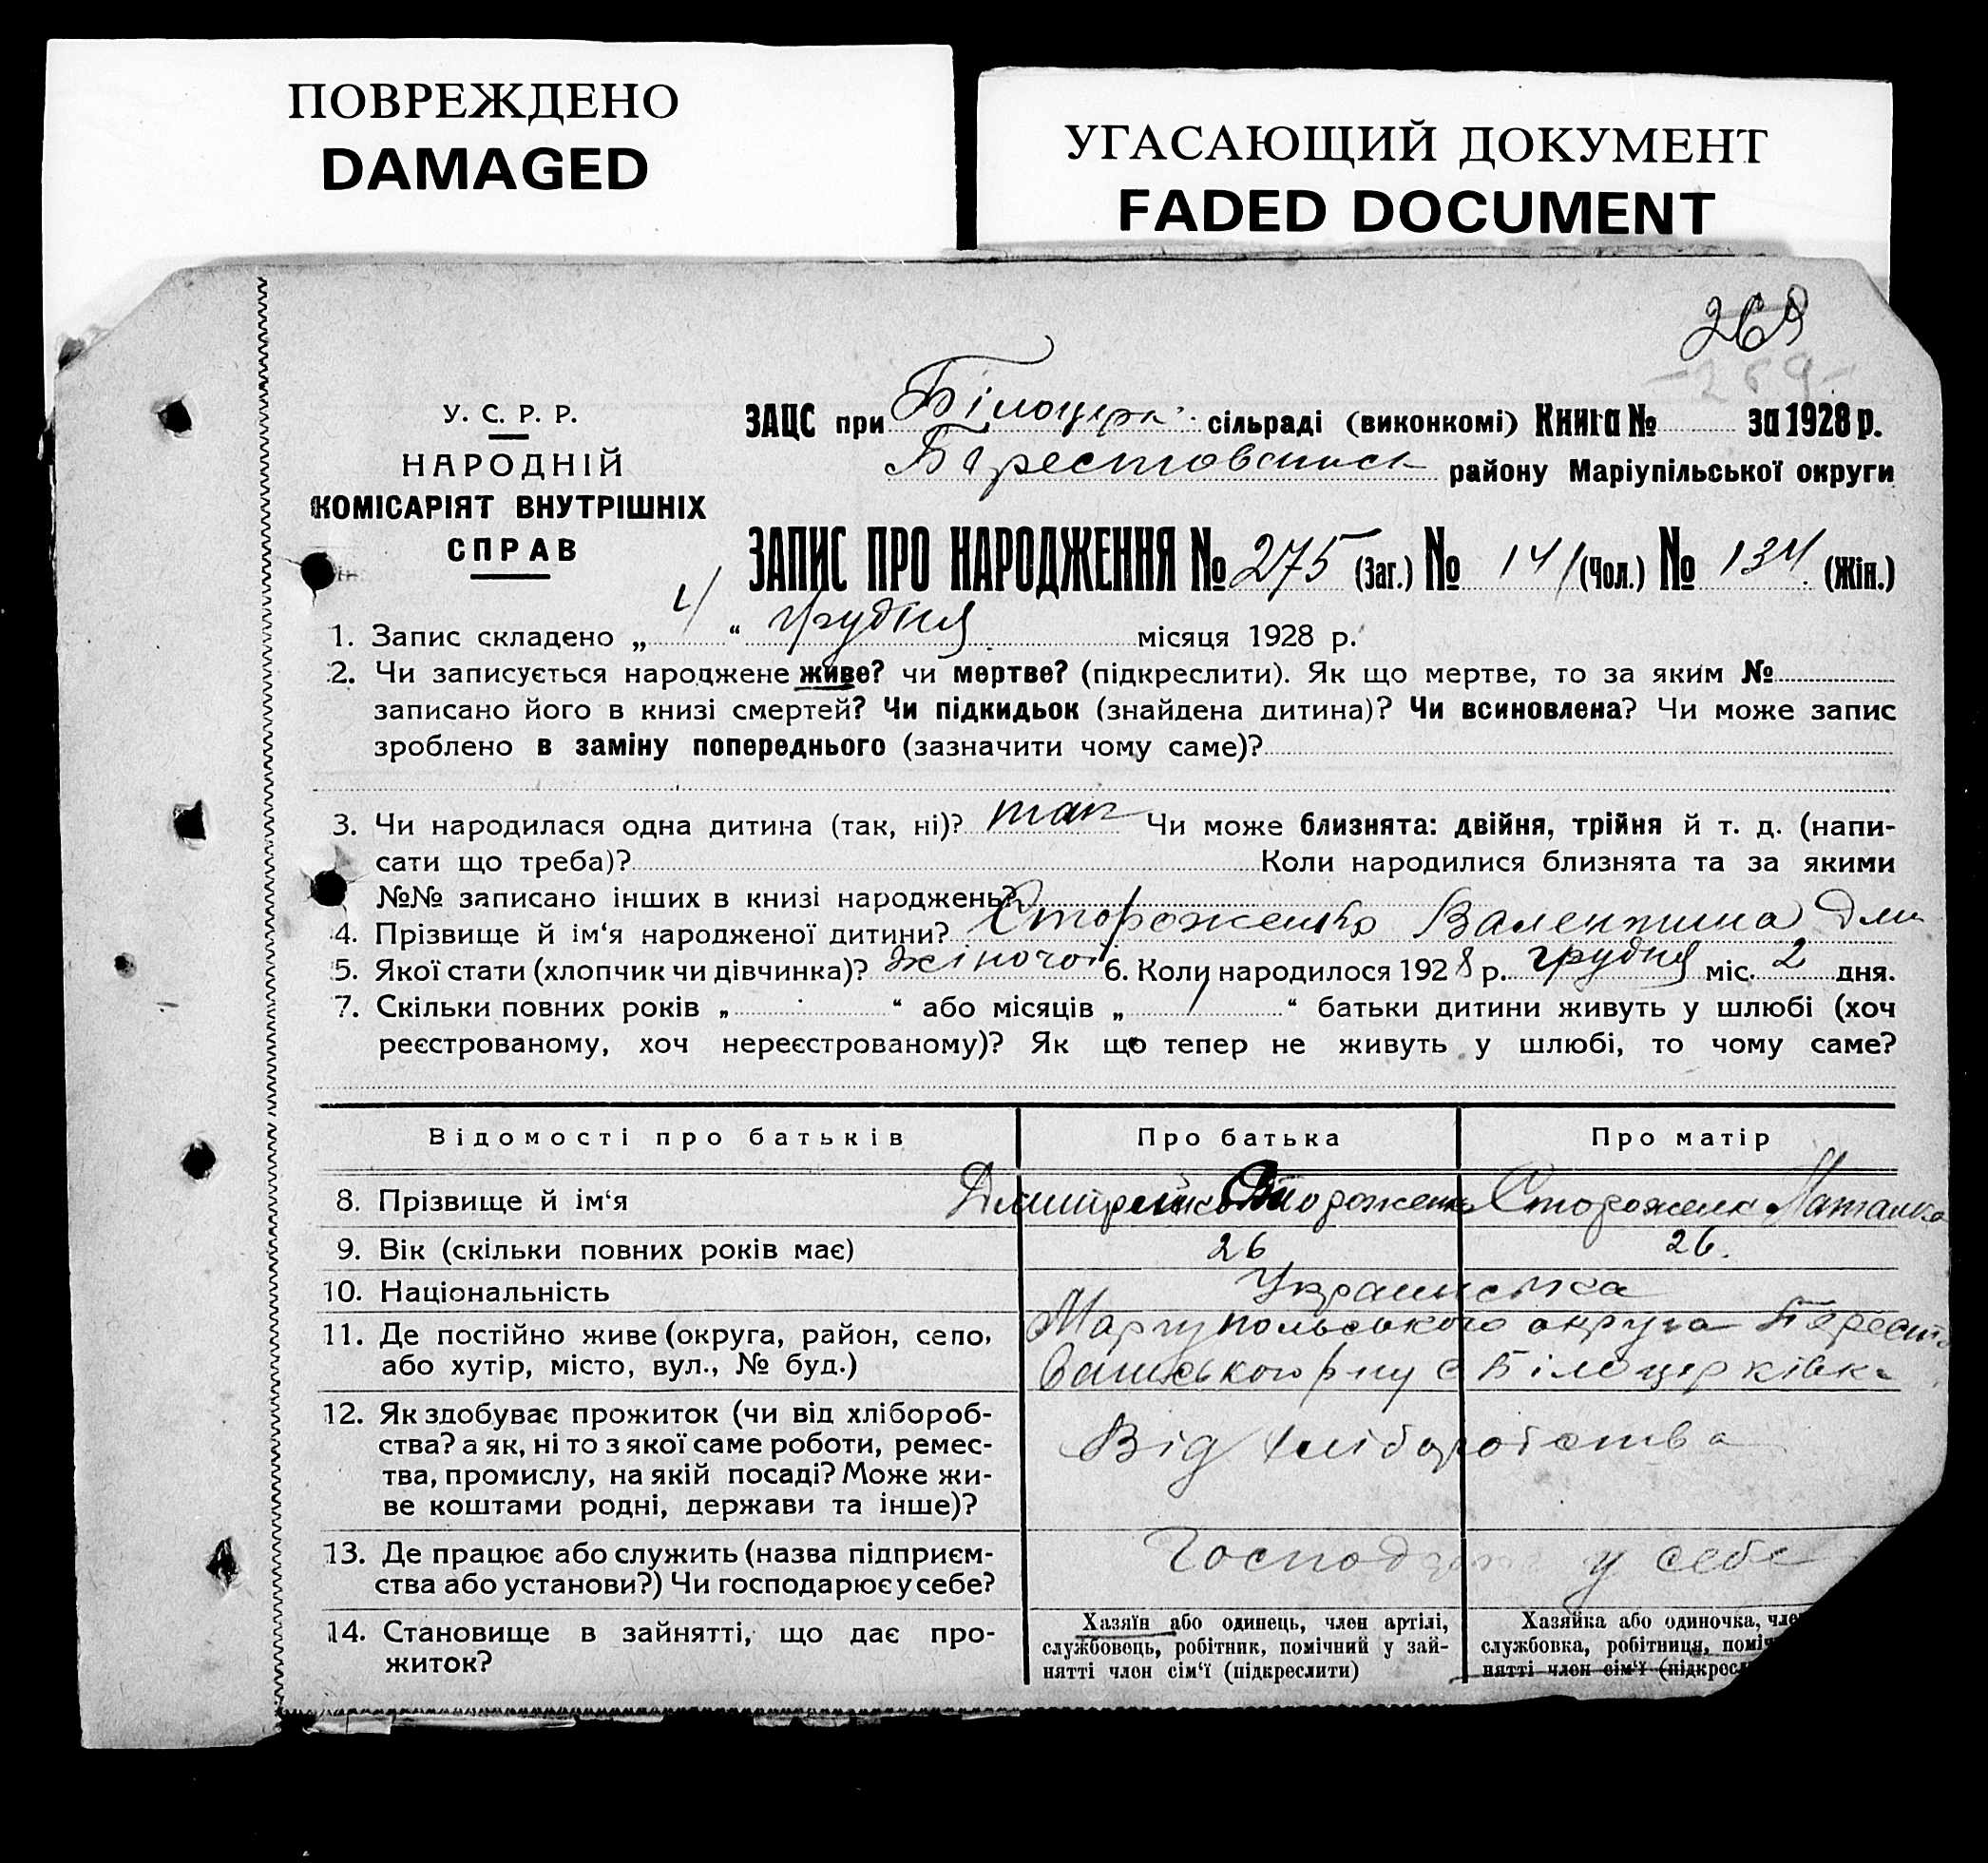 ПОВРЕЖДЕНО
DAMAGED
УГАСАЮЩИЙ ДОКУМЕНТ
FADED DOCUMENT
269
У. С. Р. Р.
НАРОДНІЙ
КОМІСАРІЯТ ВНУТРІШНІХ
СПРАВ
ЗАЦС при Білоцерк. сільраді (виконкомі) Книга № за 1928 р.
району Маріупільської округи
ЗАПИС ПРО НАРОДЖЕННЯ № 275 (Заг.) № 141 (Чол.) № 134 (Жін.)
1. Запис складено „ 4 “ грудня місяця 1928 р.
2. Чи записується народжене живе? чи мертве? (підкреслити). Як що мертве, то за яким №
записано його в книзі смертей? Чи підкидьок (знайдена дитина)? Чи всиновлена? Чи може запис
зроблено в заміну попереднього (зазначити чому саме)?
3. Чи народилася одна дитина (так, ні)? так Чи може близнята: двійня, трійня й т. д. (напи-
сати що треба)? Коли народилися близнята та за якими
№№ записано інших в книзі народжень?
4. Прізвище й ім‘я народженої дитини? Стороженко Валентина Дми
5. Якої стати (хлопчик чи дівчинка)? жіночої 6. Коли народилося 1928 р. грудня міс. 2 дня.
7. Скільки повних років „ “ або місяців „ “ батьки дитини живуть у шлюбі (хоч
реєстрованому, хоч нереєстрованому)? Як що тепер не живуть у шлюбі, то чому саме?
Відомості про батьків Про батька Про матір
8. Прізвище й ім‘я Стороженко
9. Вік (скільки повних років має) 26 26.
10. Національність Украинська
11. Де постійно живе (округа, район, село, Маріупольського округа
або хутір, місто, вул., № буд.) с Білоцерківка
12. Як здобуває прожиток (чи від хлібороб-
ства? а як, ні то з якої саме роботи, ремес- Від хліборобства
тва, промислу, на якій посаді? Може жи-
ве коштами родні, держави та інше)?
13. Де працює або служить (назва підприєм- у себе
ства або установи?) Чи господарює у себе?
14. Становище в зайнятті, що дає про-
житок?
Хазяїн або одинець, член артілі,
службовець, робітник, помічний у зай-
нятті член сім‘ї (підкреслити)
Хазяйка або одиночка,
службовка, робітниця,
нятті член сім‘ї